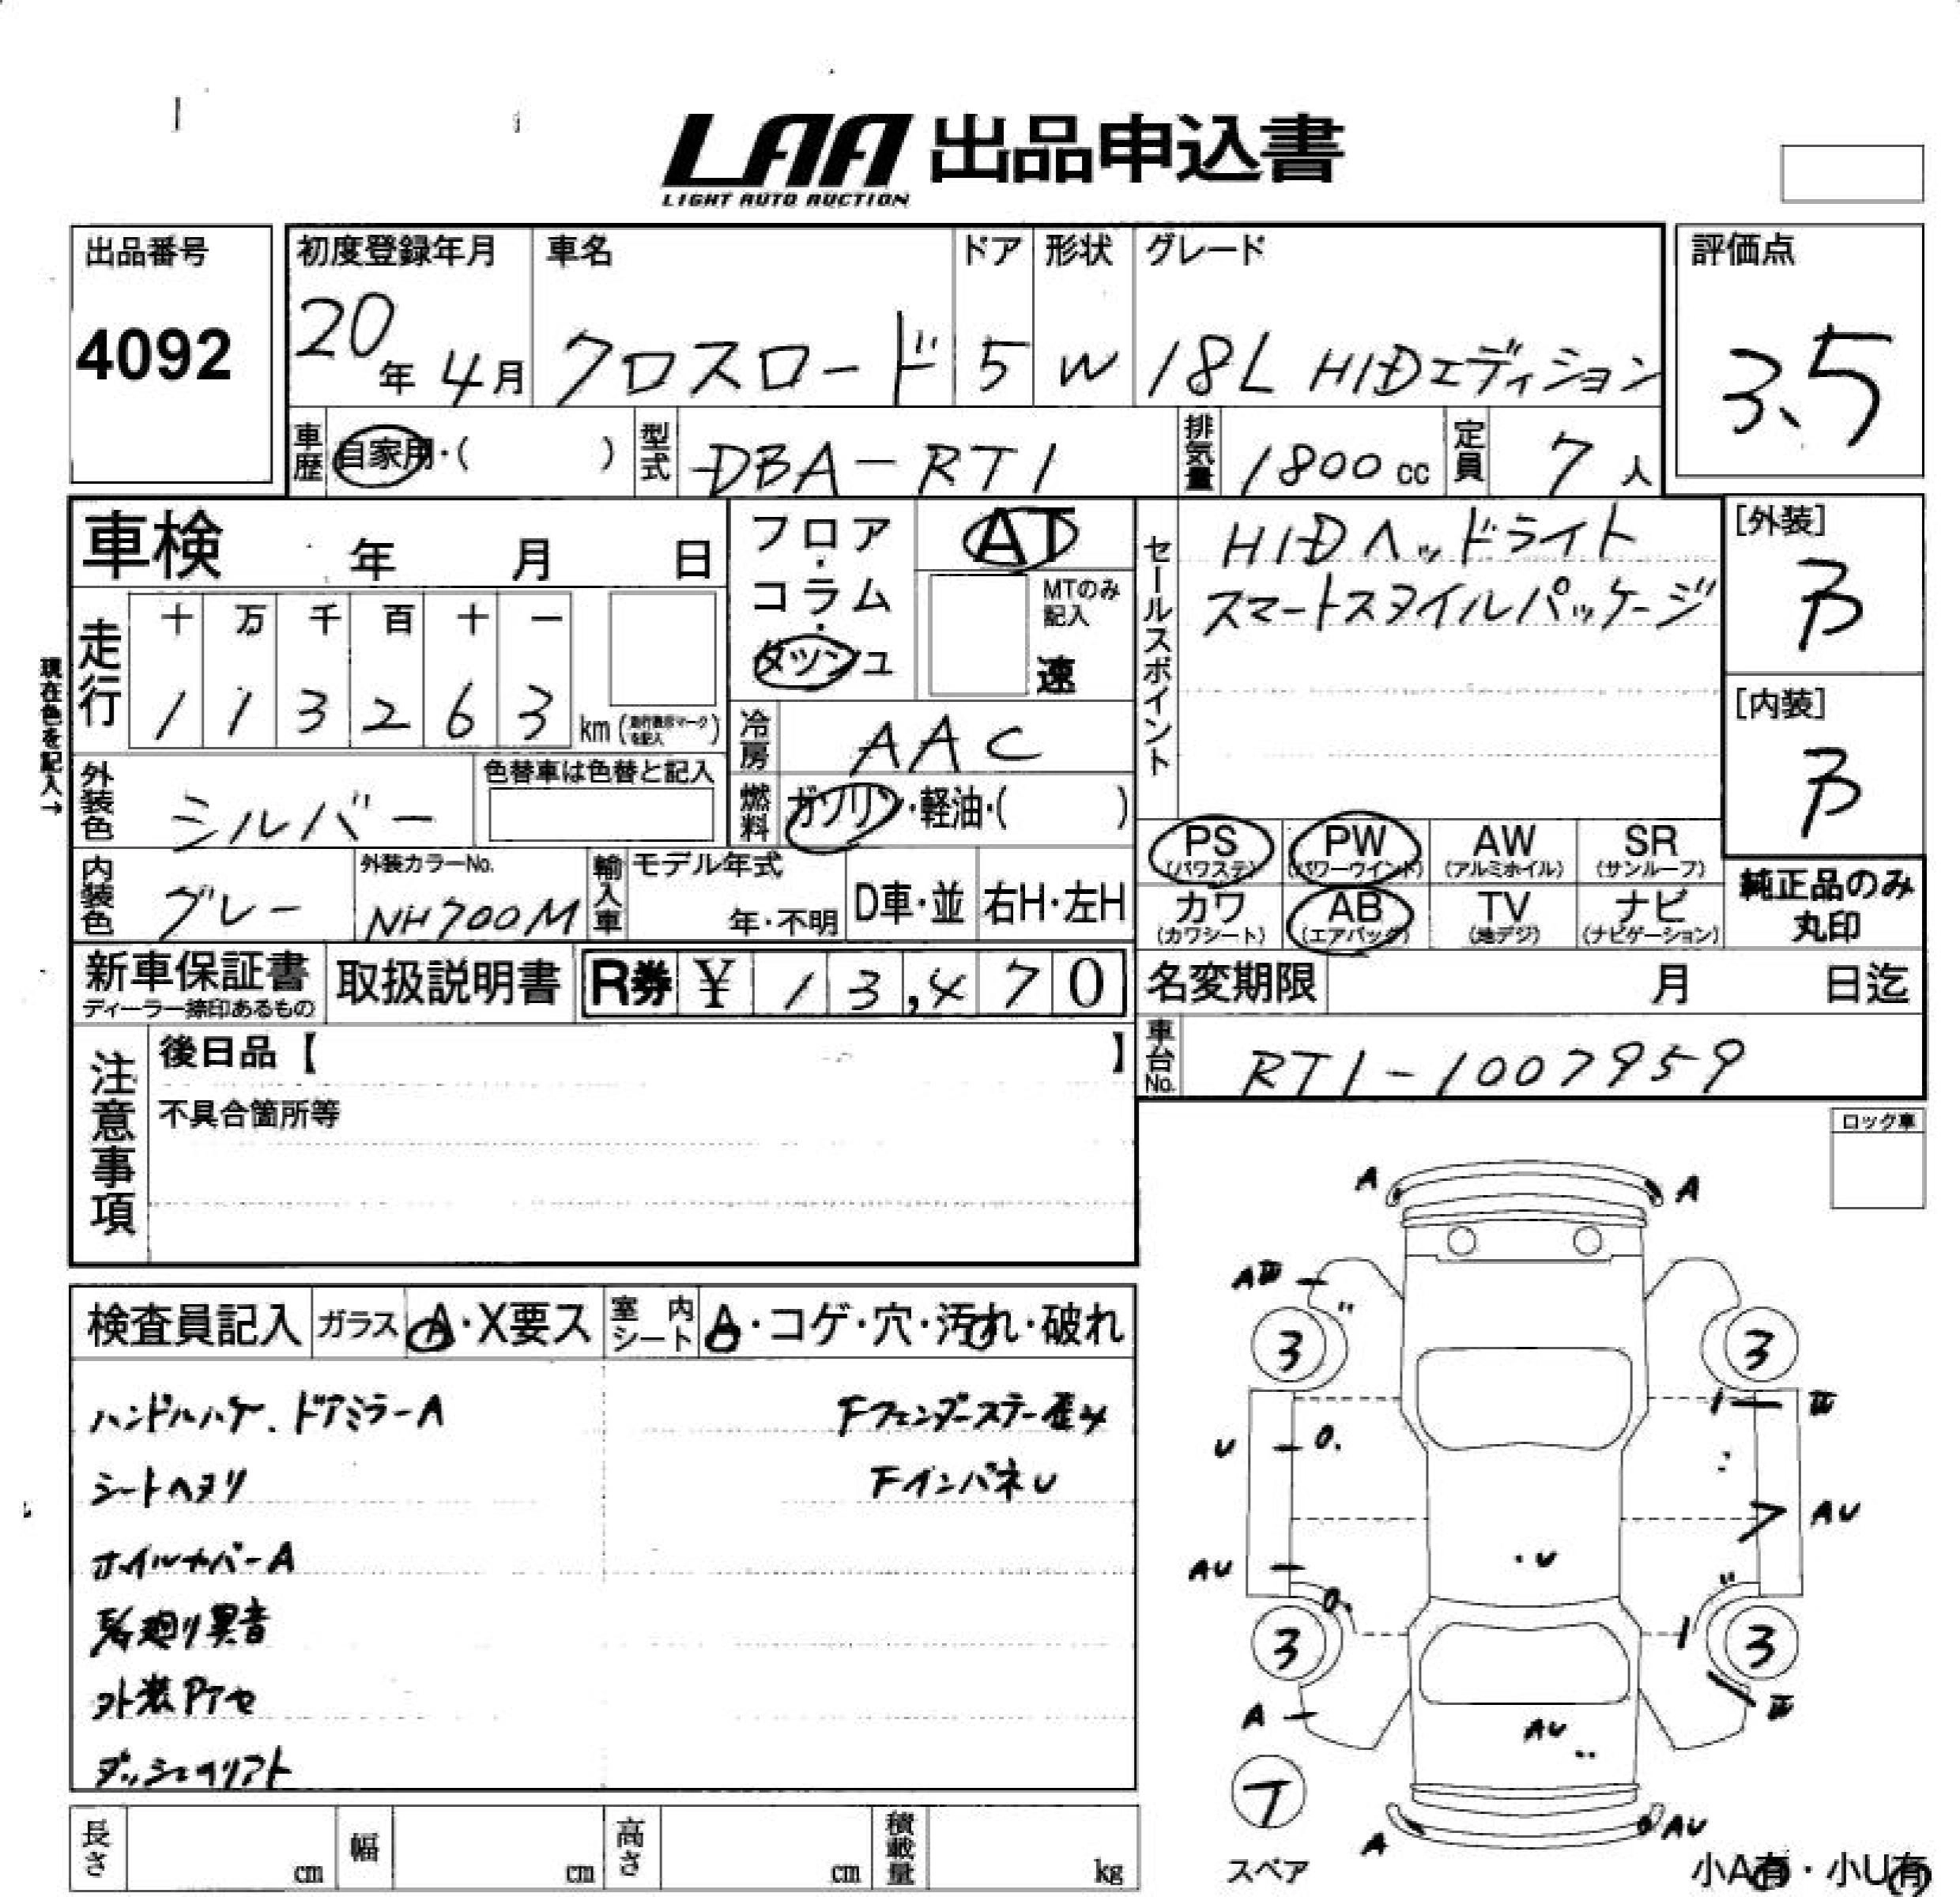 LAA 出品申込書
LIGHT AUTO AUCTION
出品番号
4092
初度登録年月
20年 4月
車名
クロスロード
ドア
5
形状
W
グレード
18L HIDエディション
評価点
3.5
車歴
自家用・( )
型式
DBA-RT1
排気量
1800cc
定員
7人
車検 年 月 日
現在色を記入→
走行
十 万 千 百 十 一
1 1 3 2 6 3 km (走行表示マークを記入)
フロア・コラム・ダッシュ
AT
MTのみ記入
速
冷房
AAC
燃料
ガソリン・軽油・( )
セールスポイント
HIDヘッドライト
スマートスタイルパッケージ
[外装]
[内装]
外装色
シルバー
色替車は色替と記入
内装色
グレー
外装カラーNo.
NH700M
輸入車
モデル年式
年・不明
D車・並
右H・左H
PS
(パワステ)
PW
(パワーウインド)
AW
(アルミホイル)
SR
(サンルーフ)
カワ
(カワシート)
AB
(エアバッグ)
TV
(地デジ)
ナビ
(ナビゲーション)
純正品のみ
丸印
新車保証書
ディーラー捺印あるもの
取扱説明書
R券 ¥ 13,470
名変期限 月 日迄
車台No.
RT1-1007959
注意事項
後日品【 】
不具合箇所等
ロック車
検査員記入
ガラス
A・X要ス
室内シート
A・コゲ・穴・汚れ・破れ
ハンドルハゲ、ドアミラーA
Fフェンダーステー歪み
シートヘタリ
FインパネU
ホイルカバーA
廻り異音
外装Pアセ
A
A
3
3
U
AU
AU
U
3
3
A
AU
A
AU
スペア
小A有・小U有
長さ cm
幅 cm
高さ cm
積載量 kg